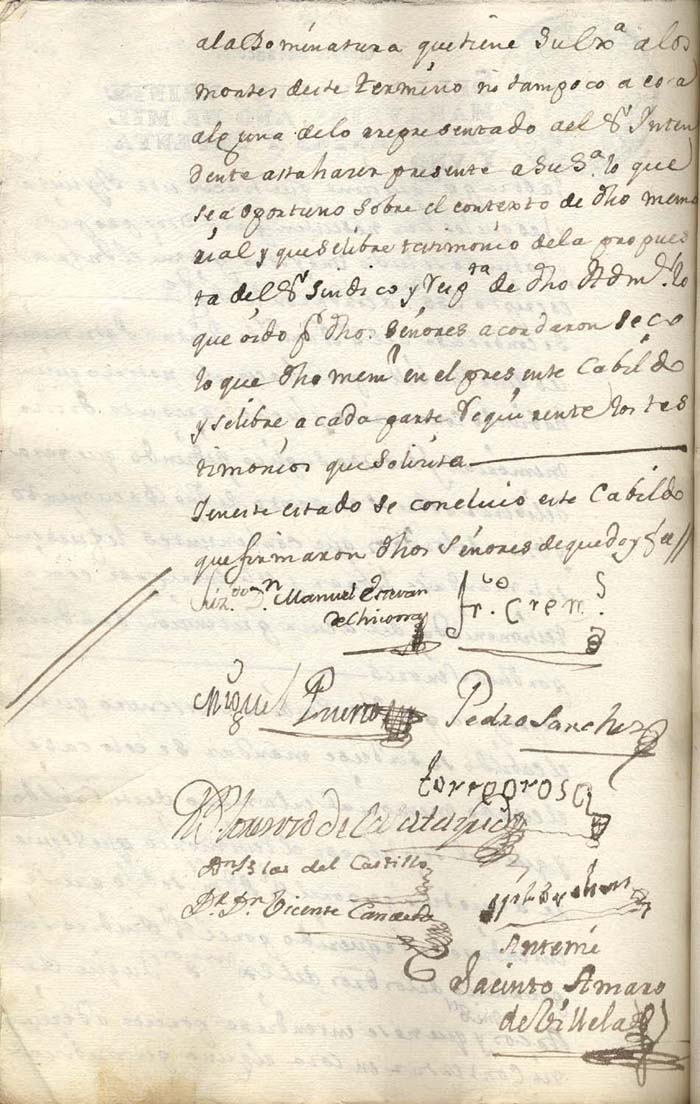 ala Dominatura que tiene Su Exª alos
montes deste termino ni tampoco a cosa
alguna delo arepresentado a el Sʳ Inten
dente asta harer presente a Su Sª lo que
sea oportuno sobre el contexto de dho memo
rial y que selibre testimonio dela propues
ta del Sʳ Sindico y Reqᵗᵃ de dho Admʳ lo
que oido pʳ dhos Señores acordaron se co
lo que dho memˡ en el presente Cabildo
y selibre a cada parte requirente los tes
timonios que solisita
Ieneste estado se concluio este Cabildo
que firmaron dhos Señores de que doy fee //
Dn Manuel Estevan
de Chicorro
Miguel Puerto
Pedro Sanchez
torregrosa
de Calatayud
Dn Blas del Castillo
Dr Dn Vicente Candela
Antemi
Jacinto Amaro
de Villela